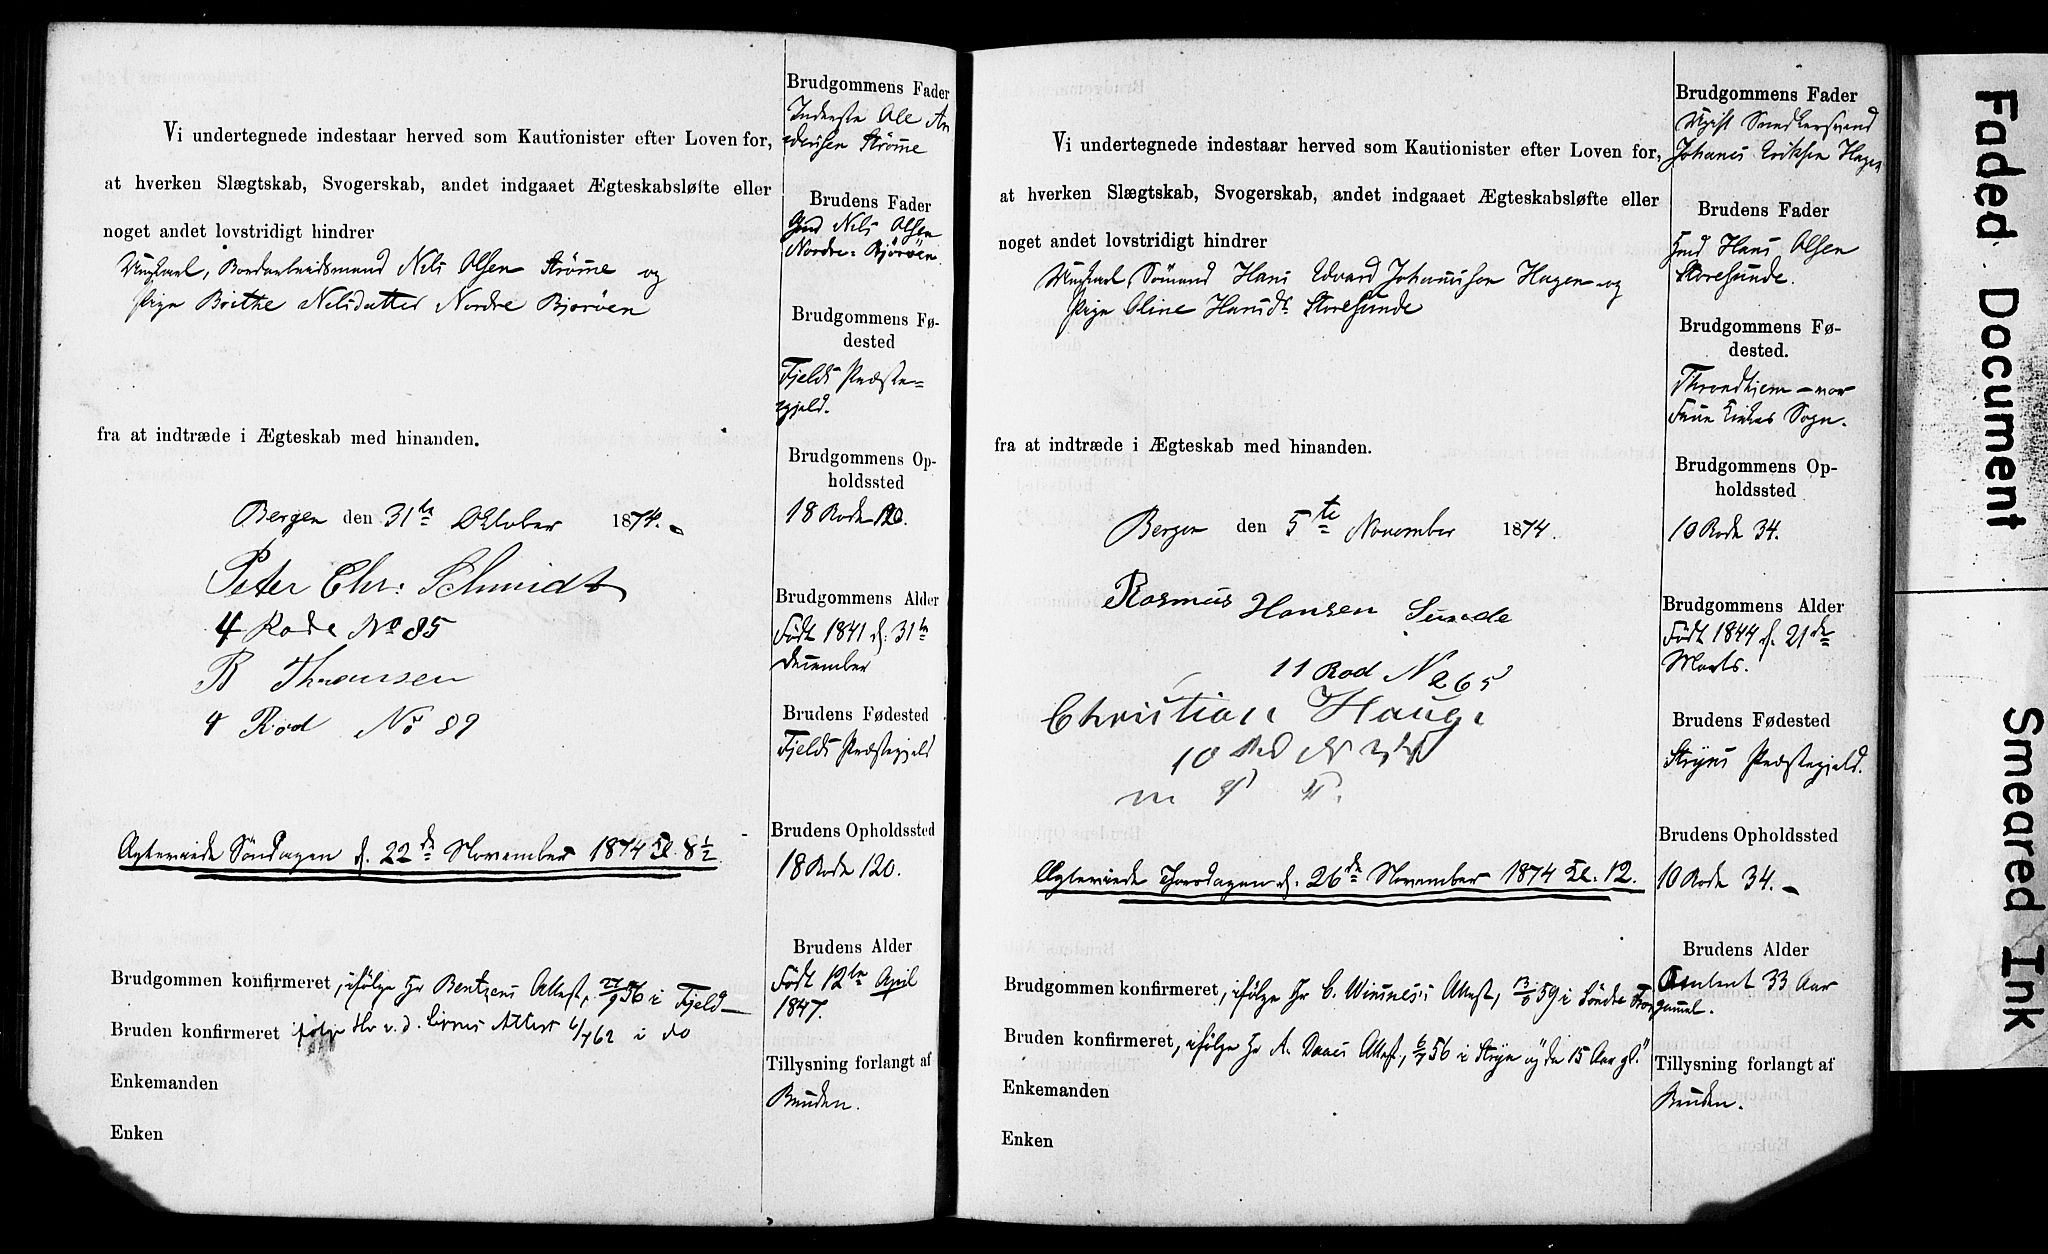 Vi undertegnede indestaar herved som Kautionister efter Loven for,
at hverken Slægtskab, Svogerskab, andet indgaaet Ægteskabsløfte eller
noget andet lovstridigt hindrer
Ungkarl, Bordarbeidsmand Nils Olsen Strømme og
Pige Brithe Nilsdatter Nordre Bjorøen
fra at indtræde i Ægteskab med hinanden.
Bergen den 31te Oktober 1874.
Peter Chr: Schmidt
4 Rode No 85
B Thomsen
4 Rod No 89
Ægteviede Søndagen d. 22de November 1874 Kl. 8 1/2.
Brudgommen konfirmeret, ifølge Hr Bentzens Attest, 56 i Fjeld
Bruden konfirmeret ifølge Hr v. d. Attest 62 i do
Enkemanden
Enken
Brudgommens Fader
Inderste Ole An
dersen Strømme
Brudens Fader
Gmd Nils Olsen
Nordre Bjørøen.
Brudgommens Fø-
dested
Fjelds Præste-
gjeld.
Brudgommens Op-
holdssted
18 Rode 120.
Brudgommens Alder
Født 1841 d. 31te
December
Brudens Fødested
Fjelds Præstegjeld
Brudens Opholdssted
18 Rode 120.
Brudens Alder
Født 12te April
1847.
Tillysning forlangt af
Bruden.
Vi undertegnede indestaar herved som Kautionister efter Loven for,
at hverken Slægtskab, Svogerskab, andet indgaaet Ægteskabsløfte eller
noget andet lovstridigt hindrer
Ungkarl, Sømand Hans Edvard Johannesen Hagen og
Pige Oline Hansdr Storesunde
fra at indtræde i Ægteskab med hinanden.
Bergen den 5te November 1874.
Rasmus Hansen Sunde
11 Rod N 265
Christian Hauge
10 Rod N
m P.
Ægteviede Thorsdagen d. 26de November 1874 Kl. 12.
Brudgommen konfirmeret, ifølge Hr C. Attest, 59 i Søndre
Bruden konfirmeret, ifølge Hr A. Daaes Attest, 6/7 56 i Stryn og "da 15 Aar gl."
Enkemanden
Enken
Brudgommens Fader
Ugift Snedkersvend
Johanes Eriksen Hagen
Brudens Fader
Gmd Hans Olsen
Storesunde.
Brudgommens Fø-
dested.
Throndhjem - vor
Frue Kirkes Sogn.
Brudgommens Op-
holdssted
10 Rode 34.
Brudgommens Alder
Født 1844 d. 21de
Marts.
Brudens Fødested
Stryns Præstegjeld.
Brudens Opholdssted
10 Rode 34.
Brudens Alder
Omtrent 33 Aar
gammel.
Tillysning forlangt af
Bruden.
Faded Document
Smeared Ink